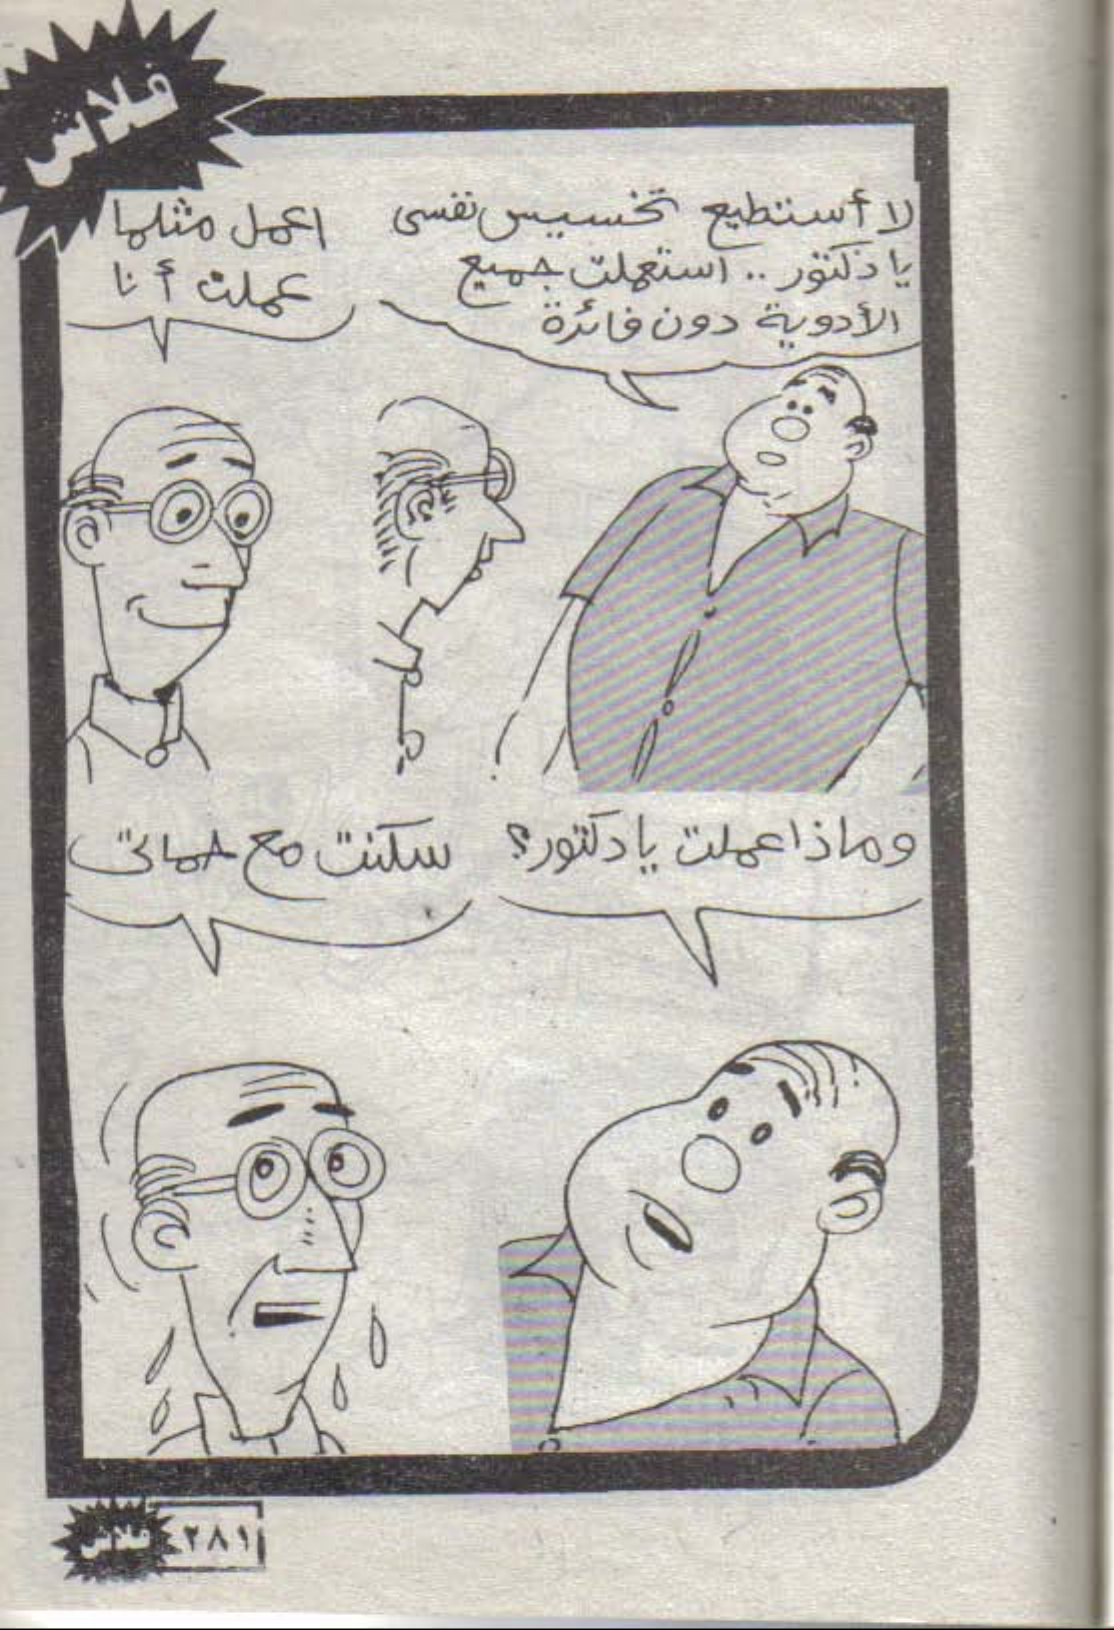 فلاش
لا أستطيع تخسيس نفسى
يا دكتور .. استعملت جميع
الأدوية دون فائدة
اعمل مثلما
عملت أنا
وماذا عملت يا دكتور؟
سكنت مع حماتى
فلاش ٢٨١